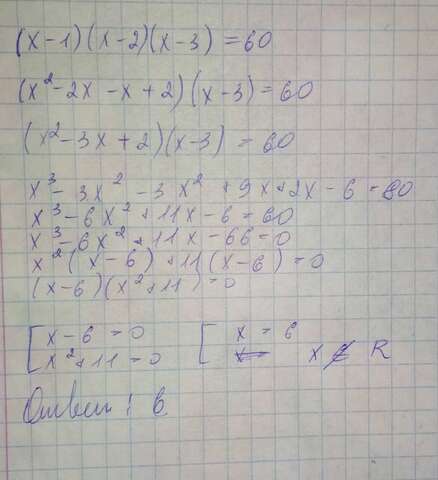 (x-1)(x-2)(x-3) = 60
(x²-2x-x+2)(x-3) = 60
(x²-3x+2)(x-3) = 60
x³-3x²-3x²+9x+2x-6=60
x³-6x²+11x-6=60
x³-6x²+11x-66=0
x²(x-6)+11(x-6)=0
(x-6)(x²+11)=0
[ x-6=0 [ x = 6
x²+11=0 x ∉ R
Ответ: 6